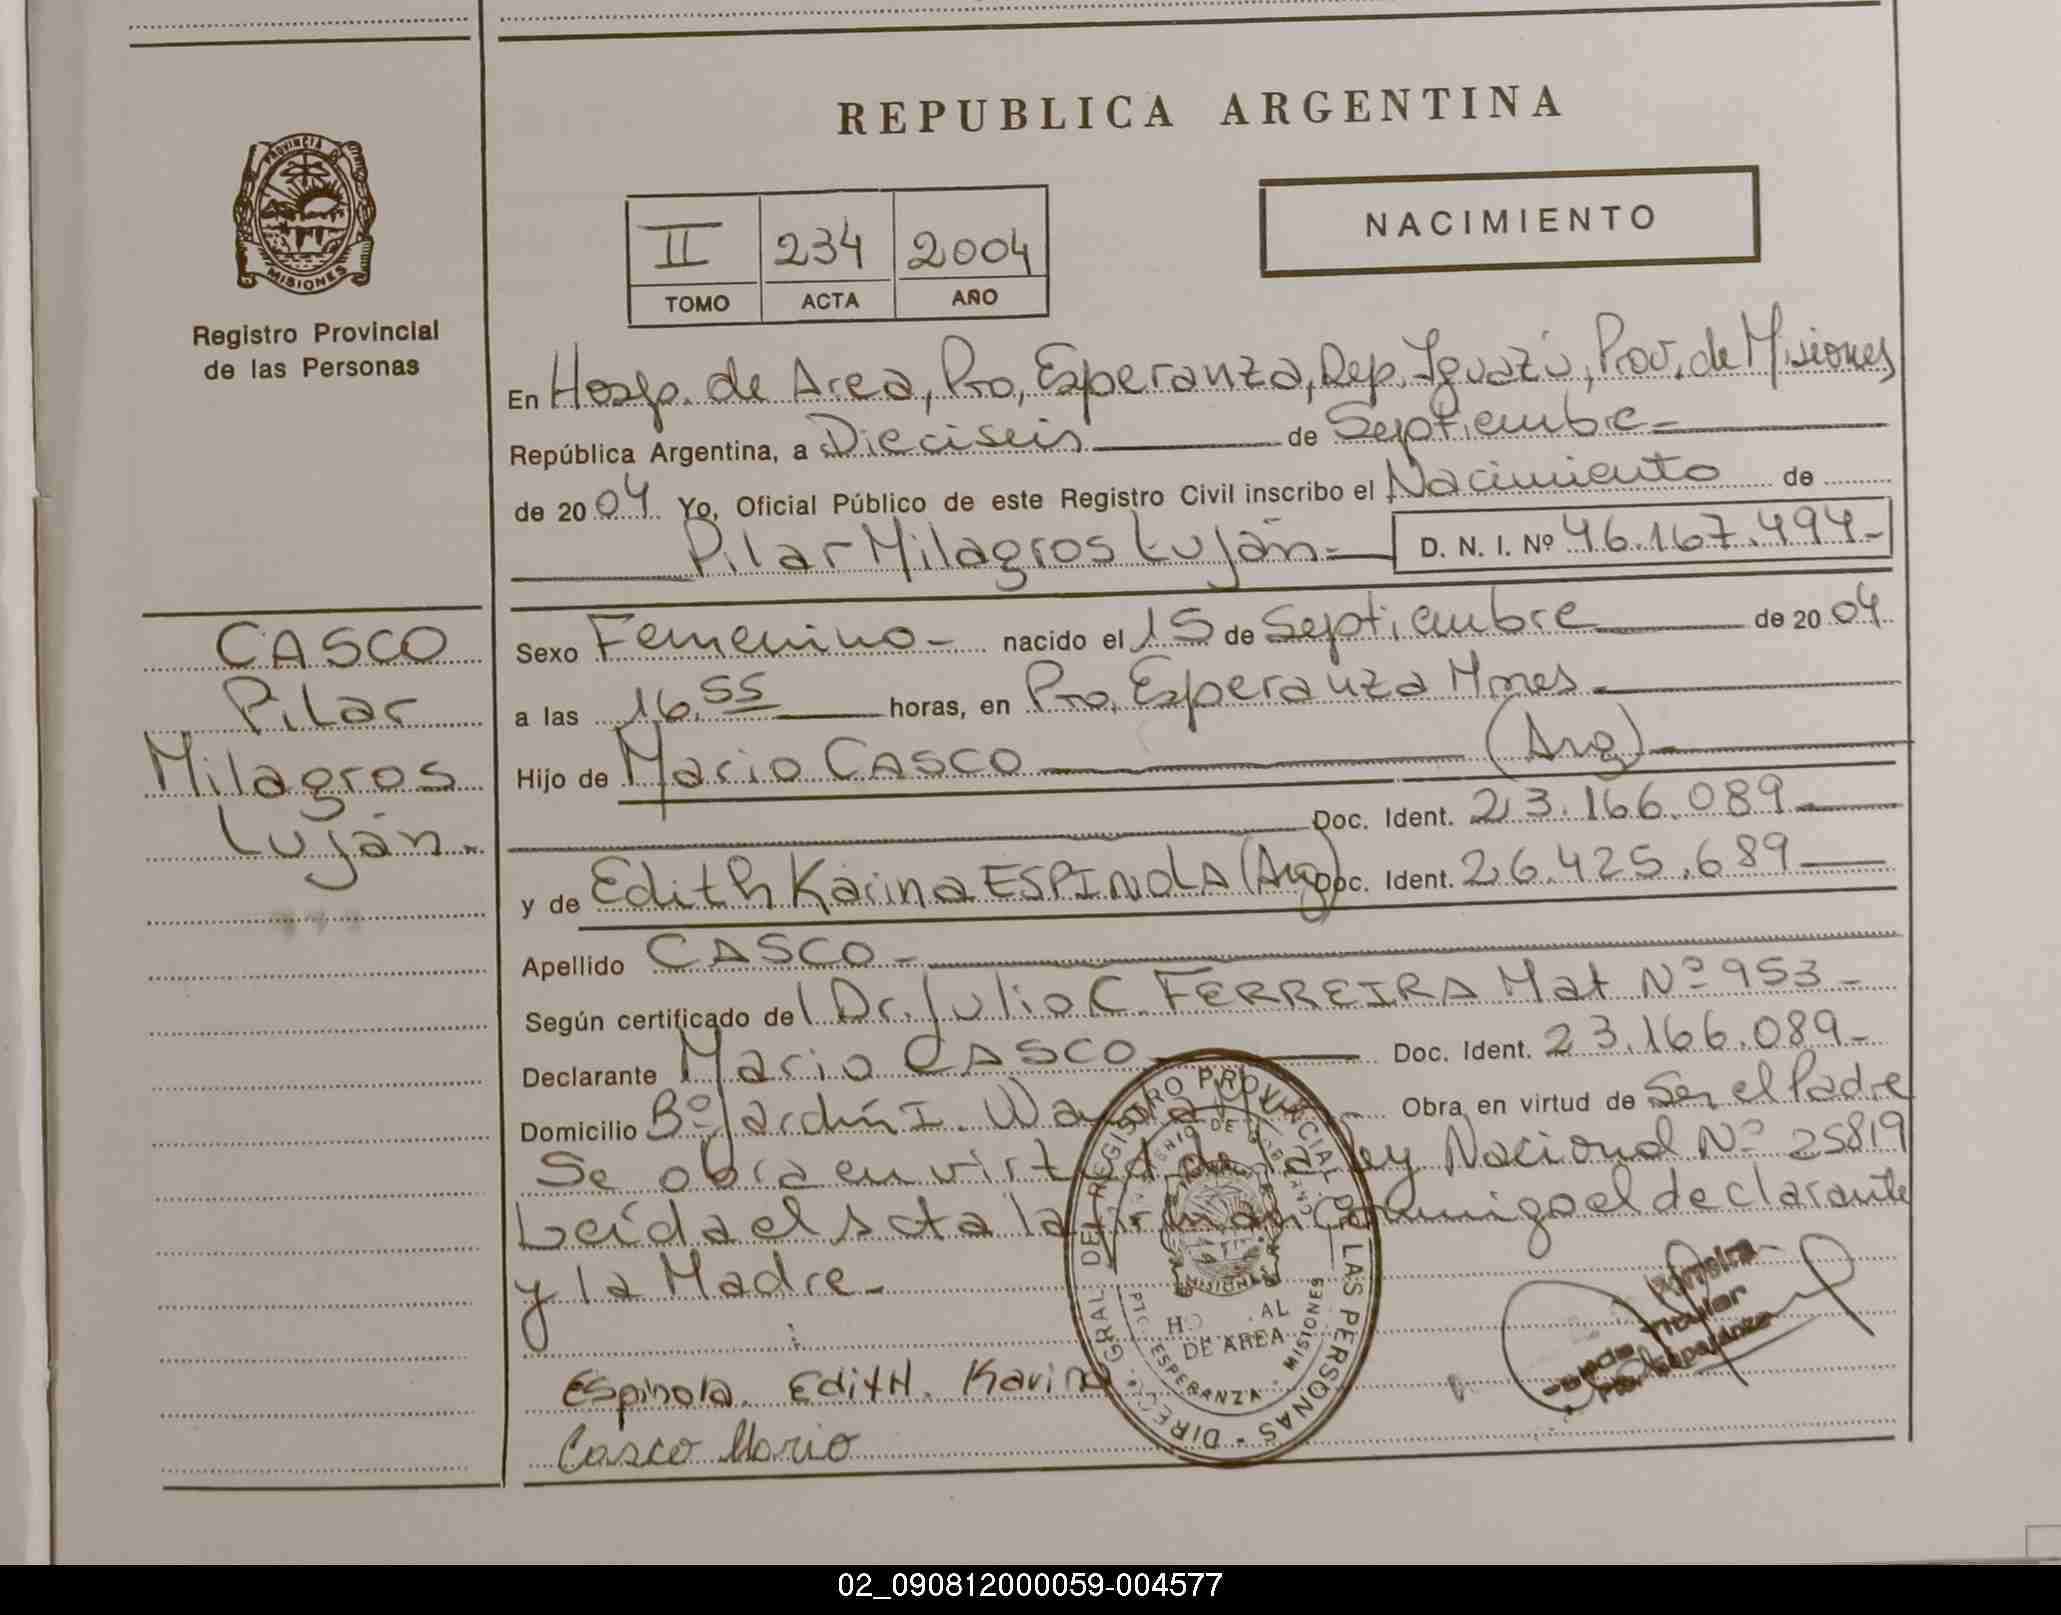 REPUBLICA ARGENTINA
PROVINCIA DE
MISIONES
Registro Provincial
de las Personas
II 234 2004
TOMO ACTA AÑO
NACIMIENTO
En Hosp. de Area, Pto, Esperanza, Dep. Iguazú, Prov. de Misiones
República Argentina, a Dieciseis de Septiembre
de 2004 Yo, Oficial Público de este Registro Civil inscribo el Nacimiento de
Pilar Milagros Luján D. N. I. Nº 46.167.494
CASCO
Pilar
Milagros
Luján
Sexo Femenino nacido el 15 de Septiembre de 2004
a las 16.55 horas, en Pto. Esperanza Mnes
Hijo de Mario CASCO (Arg)
Doc. Ident. 23.166.089
y de Edith Karina ESPINOLA (Arg) Doc. Ident. 26.425.689
Apellido CASCO
Según certificado del Dr. Julio C. FERREIRA Mat Nº 953
Declarante Mario CASCO Doc. Ident. 23.166.089
Domicilio Bº Jardín I. Obra en virtud de Ser el Padre
Se obra en virtud de la Ley Nacional Nº 25819
Leída el acta la firman conmigo el declarante
y la Madre
Espinola. Edith. Karina
Casco Mario
DIREC. GRAL. DEL REGISTRO PROVINCIAL DE LAS PERSONAS
MISIONES
DE AREA
ESPERANZA - MISIONES
02_090812000059-004577